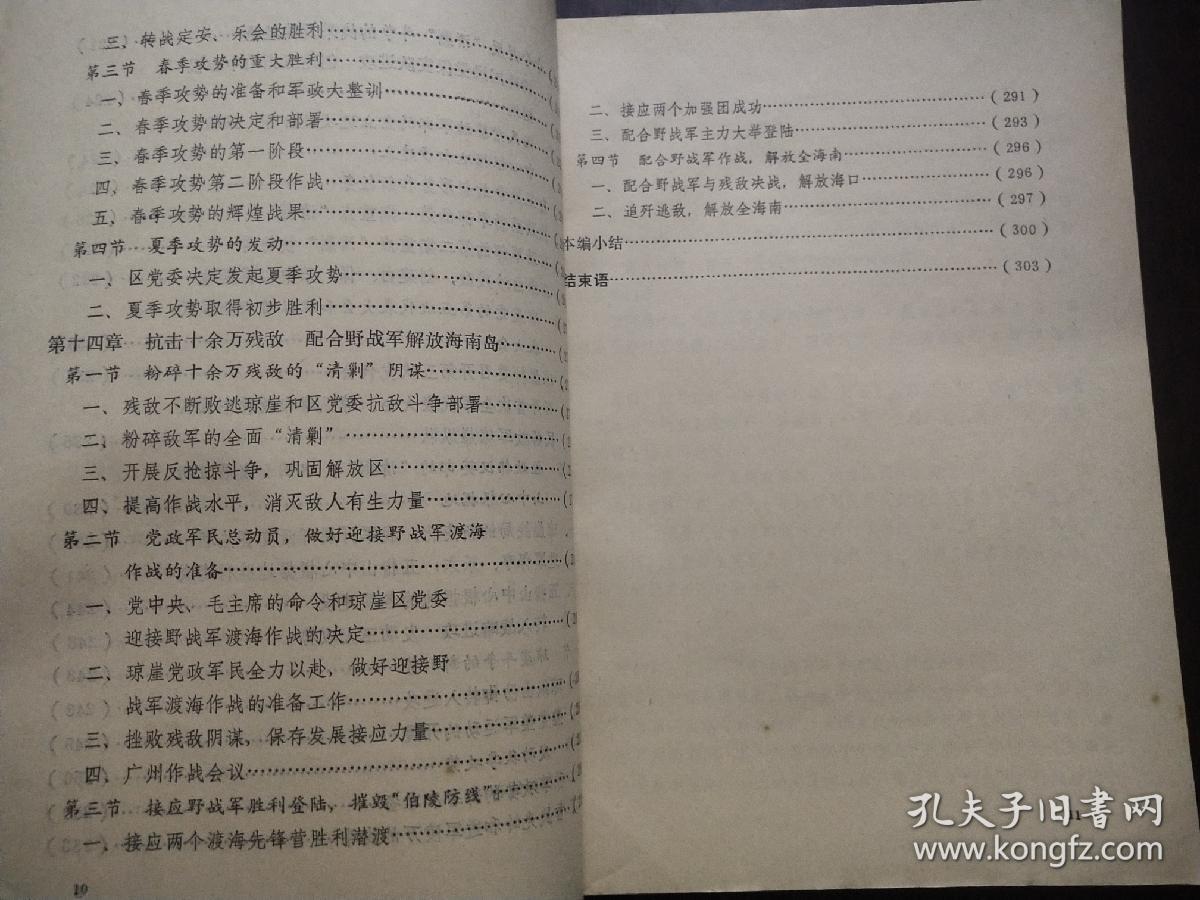 三、转战定安、乐会的胜利
第三节　春季攻势的重大胜利
一、春季攻势的准备和军政大整训
二、春季攻势的决定和部署
三、春季攻势的第一阶段
四、春季攻势第二阶段作战
五、春季攻势的辉煌战果
第四节　夏季攻势的发动
一、区党委决定发起夏季攻势
二、夏季攻势取得初步胜利
第十四章　抗击十余万残敌　配合野战军解放海南岛
第一节　粉碎十余万残敌的“清剿”阴谋
一、残敌不断败逃琼崖和区党委抗敌斗争部署
二、粉碎敌军的全面“清剿”
三、开展反抢掠斗争，巩固解放区
四、提高作战水平，消灭敌人有生力量
第二节　党政军民总动员，做好迎接野战军渡海
作战的准备
一、党中央、毛主席的命令和琼崖区党委
迎接野战军渡海作战的决定
二、琼崖党政军民全力以赴，做好迎接野
战军渡海作战的准备工作
三、挫败残敌阴谋，保存发展接应力量
四、广州作战会议
第三节　接应野战军胜利登陆，摧毁“伯陵防线”
一、接应两个渡海先锋营胜利潜渡
10
二、接应两个加强团成功（291）
三、配合野战军主力大举登陆（293）
第四节　配合野战军作战，解放全海南（296）
一、配合野战军与残敌决战，解放海口（296）
二、追歼逃敌，解放全海南（297）
本编小结（300）
结束语（303）
孔夫子旧书网
www.kongfz.com